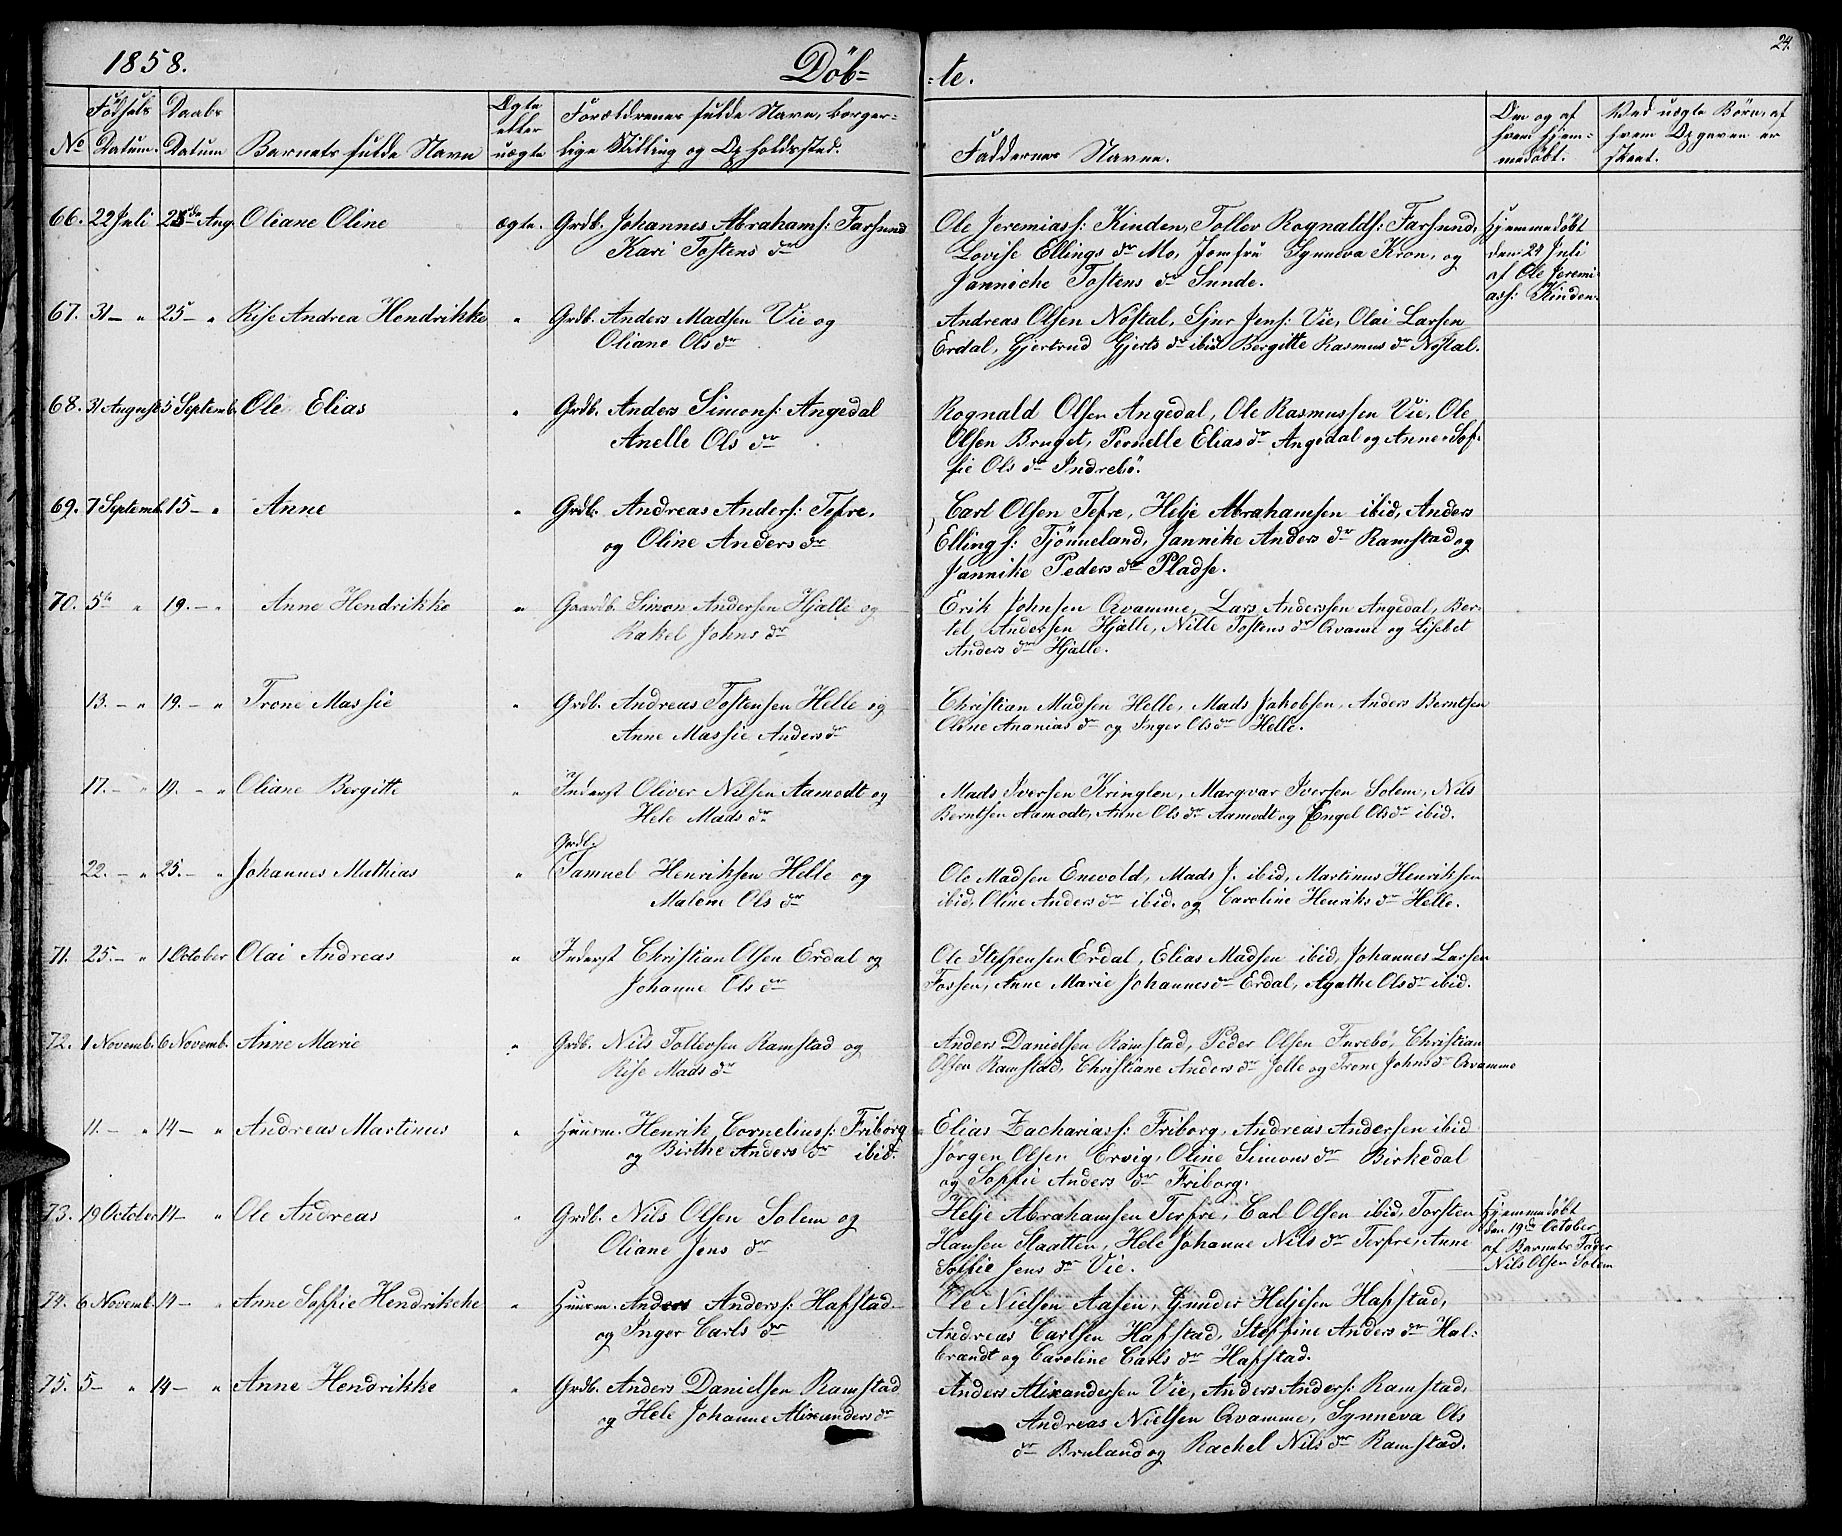 1858. Döb- -te. 24.
No Fødsels Datum. Daabs Datum Barnets fulde Navn Ægte eller uægte Forældrenes fulde Navn, borgerlige Stilling og Opholdssted. Faddernes Navne. Om og af hvem hjemmedøbt. Ved uægte Børn, af hvem Opgaven er skeet.
66. 22 Juli 25de Aug. Oliane Oline ægte. Grdb. Johannes Abrahams: Farsund Ole Jeremiass: Kinden, Tollev Rognalds: Farsund, Hjemmedöbt
Kari Tostens dr Lovise Ellings dr Mo, Jomfru Synneva Kron, og den 24 Juli
Janniche Tostens dr Sunde. af Ole Jeremiass: Kinden.
67. 31 – " 25 – " Rise Andrea Hendrikke " Grdb. Anders Madsen Vie og Andreas Olsen Nøstal, Sjur Jens: Vie, Olai Larsen
Oliane Ols dr Erdal, Gjertrud Gjerts dr ibid Bergitte Rasmus dr Nøstal.
68. 31 August 5 Septemb. Ole Elias " Grdb. Anders Simons: Angedal Rognald Olsen Angedal, Ole Rasmussen Vie, Ole
Anelle Ols dr Olsen Bruget, Pernelle Elias dr Angedal og Anne Sof-
fie Ols dr Indrebö.
69. 7 Septemb. 15 – " Anne " Grdb. Andreas Anders: Tefre, Carl Olsen Tefre, Helje Abrahamsen ibid, Anders
og Oline Anders dr Ellings: Tjönneland, Jannike Anders dr Ramstad og
Jannike Peders dr Pladse.
70. 5te " 19. – " Anne Hendrikke " Gaardb. Simon Andersen Hjelle og Erik Johnsen Qvamme, Lars Anderssen Angedal, Ber-
Rakel Johns dr tel Andersen Hjelle, Nille Tostens dr Qvame og Lisebet
Anders dr Hjelle.
13. – " 19. – " Trone Massie " Grdb. Andreas Tostensen Helle og Christian Madsen Helle, Mads Jakobsen, Anders Berntsen
Anne Massie Anders dr Oldne Ananias dr og Inger Ols dr Helle.
17. – " 19. – " Oliane Bergitte " Inderst Oliver Nilsen Aamodt og Mads Iversen Kringlen, Margvar Iversen Solem, Nils
Hele Mads dr Berntsen Aamodt, Anne Ols dr Aamodt og Engel Ols dr ibid.
22. – " 25. – " Johannes Mathias " Grdb. Samuel Henriksen Helle og Ole Madsen Enevold, Mads J. ibid, Martinus Henriksen
Malene Ols dr ibid, Oline Anders dr ibid. og Caroline Henriks dr Helle.
71. 25. – " 1 October Olai Andreas " Inderst Christian Olsen Erdal og Ole Steffensen Erdal, Elias Madsen ibid, Johannes Larsen
Johanne Ols dr Fossen, Anne Marie Johannes dr Erdal, Agathe Ols dr ibid.
72. 1 Novemb. 6 Novemb. Anne Marie " Grdb. Nils Tollevsen Ramstad og Anders Danielsen Ramstad, Peder Olsen Furebö, Christian
Rise Mads dr Olsen Ramstad, Christiane Anders dr Jelle og Trone Johns dr Qvamme
11. – " 14 – " Andreas Martinus " Huusm. Henrik Cornelius: Friborg Elias Zacharias: Friborg, Andreas Andersen ibid
og Birthe Anders dr ibid. Jörgen Olsen Ervig, Oline Simons dr Birkedal
og Soffie Anders dr Friborg.
73. 19 October 14 – " Ole Andreas " Grdb. Nils Olsen Solem og Helje Abrahamsen Terfre, Carl Olsen ibid, Torsten Hjemmedöbt
Oliane Jens dr Hansen Slaatten, Hele Johanne Nils dr Terfre, Anne den 19de October
Soffie Jens dr Vie. af Barnets Fader Nils Olsen Solem
74. 6 Novemb. 14 – " Anne Soffie Hendrikeke " Huusm. Anders Anderss: Hafstad Ole Nielsen Aasen, Gunder Heljesen Hafstad,
og Inger Carls dr Andreas Carlsen Hafstad, Steffine Anders dr Hal-
brandt og Caroline Carls dr Hafstad.
75. 5 – " 14 – " Anne Hendrikke " Grdb. Anders Danielsen Ramstad Anders Alixandersen Vie, Anders Anders: Ramstad,
og Hele Johanne Alixanders dr Andreas Nielsen Qvamme, Synneva Ols
dr Bruland og Rachel Nils dr Ramstad.